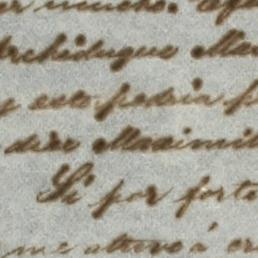 mucho.
Archiduque Ma
y esto podria p
dire Maximil
Si por fort
me atrevo á cr